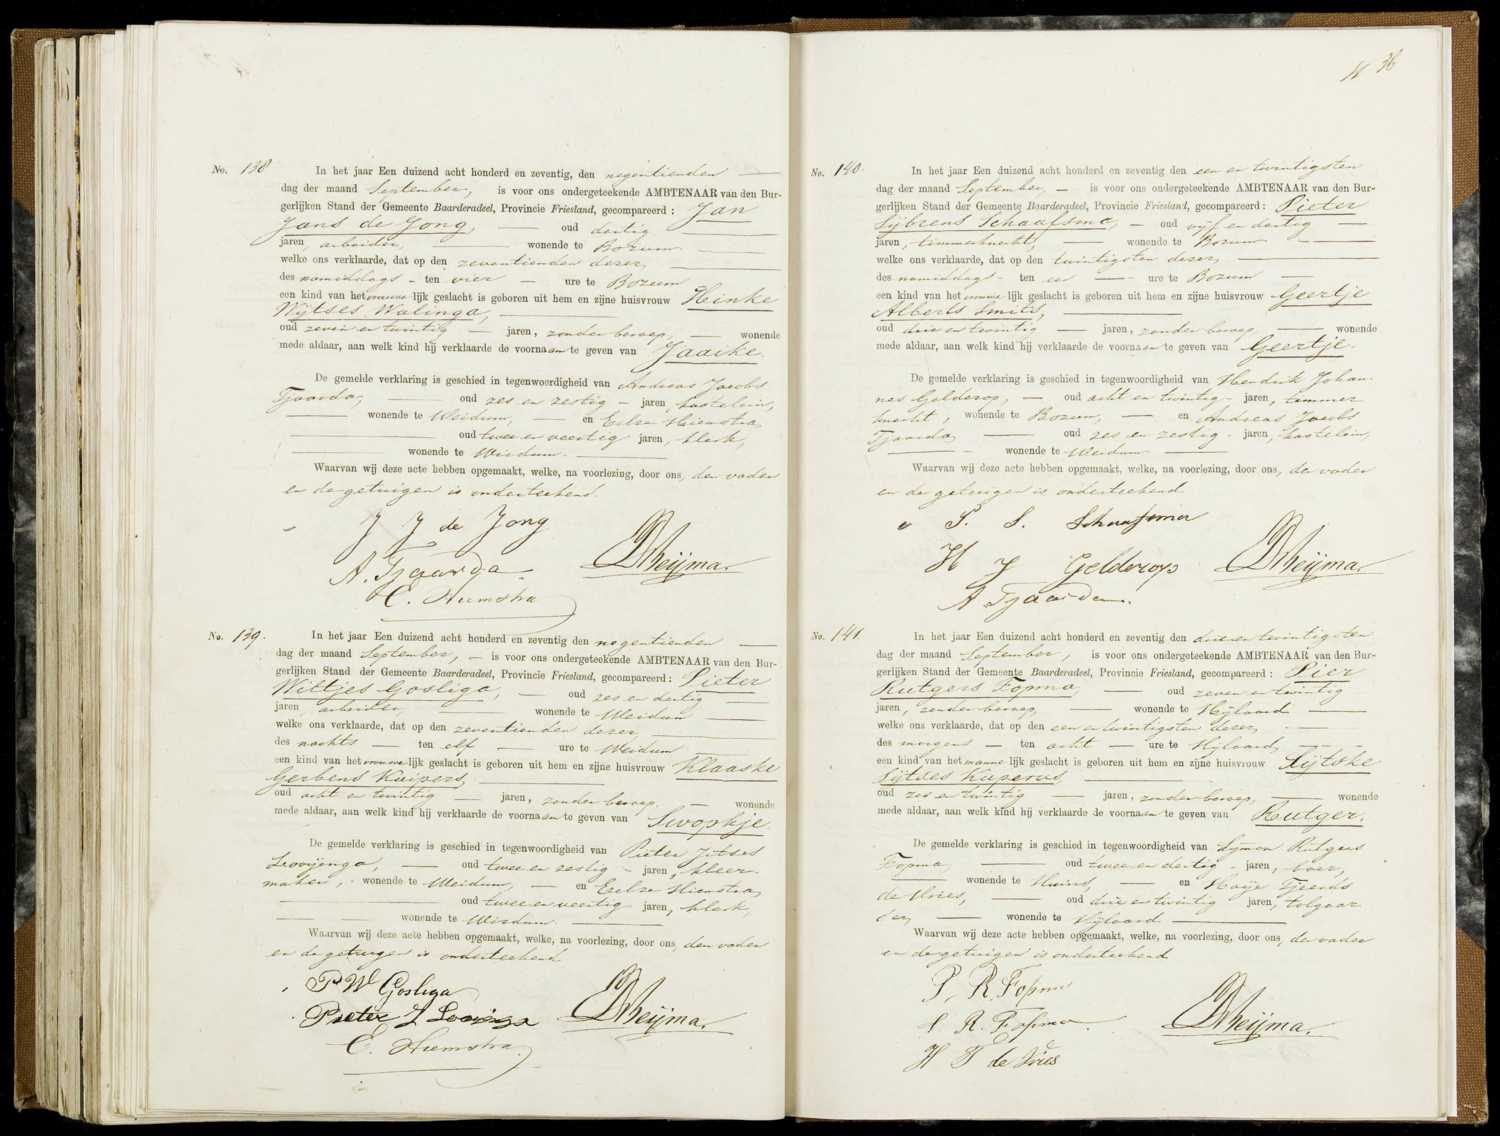 No. 138 In het jaar Een duizend acht honderd en zeventig, den negentienden
dag der maand September, is voor ons ondergeteekende AMBTENAAR van den Bur-
gerlijken Stand der Gemeente Baarderadeel, Provincie Friesland, gecompareerd: Jan
Jans de Jong, oud dertig
jaren, arbeider, wonende te Bozum
welke ons verklaarde, dat op den zeventienden dezer,
des namiddags ten vier ure te Bozum
een kind van het vrouwelijk geslacht is geboren uit hem en zijne huisvrouw Hinke
Wijtses Walinga,
oud zeven en twintig jaren, zonder beroep, wonende
mede aldaar, aan welk kind hij verklaarde de voornaam te geven van Jaaike.
De gemelde verklaring is geschied in tegenwoordigheid van Andreas Jacobs
Tjaarda, oud zes en zestig jaren, kastelein,
wonende te Weidum, en Eelze Hiemstra,
oud twee en veertig jaren, klerk,
wonende te Weidum.
Waarvan wij deze acte hebben opgemaakt, welke, na voorlezing, door ons, den vader
en de getuigen is onderteekend.
J J de Jong
A. Tjaarda Rheijma.
E. Hiemstra
No. 139. In het jaar Een duizend acht honderd en zeventig den negentienden
dag der maand September, is voor ons ondergeteekende AMBTENAAR van den Bur-
gerlijken Stand der Gemeente Baarderadeel, Provincie Friesland, gecompareerd: Pieter
Wiltjes Gosliga, oud zes en dertig
jaren, arbeider, wonende te Weidum
welke ons verklaarde, dat op den zeventienden dezer,
des nachts ten elf ure te Weidum
een kind van het vrouwelijk geslacht is geboren uit hem en zijne huisvrouw Klaaske
Gerbens Kuipers,
oud acht en twintig jaren, zonder beroep, wonende
mede aldaar, aan welk kind hij verklaarde de voornaam te geven van Swopkje.
De gemelde verklaring is geschied in tegenwoordigheid van Pieter Jitses
Looijenga, oud twee en zestig jaren, kleer-
maker, wonende te Weidum, en Eelze Hiemstra,
oud twee en veertig jaren, klerk,
wonende te Weidum
Waarvan wij deze acte hebben opgemaakt, welke, na voorlezing, door ons, den vader
en de getuigen is onderteekend
P W Gosliga
Pieter J Looienga Rheijma.
E. Hiemstra
36
No. 140. In het jaar Een duizend acht honderd en zeventig den een en twintigsten
dag der maand September, is voor ons ondergeteekende AMBTENAAR van den Bur-
gerlijken Stand der Gemeente Baarderadeel, Provincie Friesland, gecompareerd: Pieter
Sijbrens Schaafsma, oud vijf en dertig
jaren, timmerknecht, wonende te Bozum
welke ons verklaarde, dat op den twintigsten dezer,
des namiddags ten een ure te Bozum
een kind van het vrouwelijk geslacht is geboren uit hem en zijne huisvrouw Geertje
Alberts Smits,
oud drie en twintig jaren, zonder beroep, wonende
mede aldaar, aan welk kind hij verklaarde de voornaam te geven van Geertje.
De gemelde verklaring is geschied in tegenwoordigheid van Hendrik Johan-
nes Gelderop, oud acht en twintig jaren, timmer
knecht, wonende te Bozum, en Andreas Jacobs
Tjaarda, oud zes en zestig jaren, kastelein,
wonende te Weidum
Waarvan wij deze acte hebben opgemaakt, welke, na voorlezing, door ons, den vader
en de getuigen is onderteekend
P. S. Schaafsma
H J Gelderop Rheijma.
A Tjaarda.
No. 141. In het jaar Een duizend acht honderd en zeventig den drie en twintigsten
dag der maand September, is voor ons ondergeteekende AMBTENAAR van den Bur-
gerlijken Stand der Gemeente Baarderadeel, Provincie Friesland, gecompareerd: Pier
Rutgers Fopma, oud zeven en twintig
jaren, zonder beroep, wonende te Hijlaard
welke ons verklaarde, dat op den een en twintigsten dezer,
des morgens ten acht ure te Hijlaard,
een kind van het mannelijk geslacht is geboren uit hem en zijne huisvrouw Sijtske
Sijtses Kuperus,
oud zes en twintig jaren, zonder beroep, wonende
mede aldaar, aan welk kind hij verklaarde de voornaam te geven van Rutger.
De gemelde verklaring is geschied in tegenwoordigheid van Sijmon Rutgers
Fopma, oud twee en dertig jaren, boer,
wonende te Huins, en Haije Tjeerds
de Vries, oud drie en twintig jaren, tolgaar
der, wonende te Hijlaard
Waarvan wij deze acte hebben opgemaakt, welke, na voorlezing, door ons, den vader
en de getuigen is onderteekend
P. R. Fopma
S R. Fopma. Rheijma.
H T de Vries